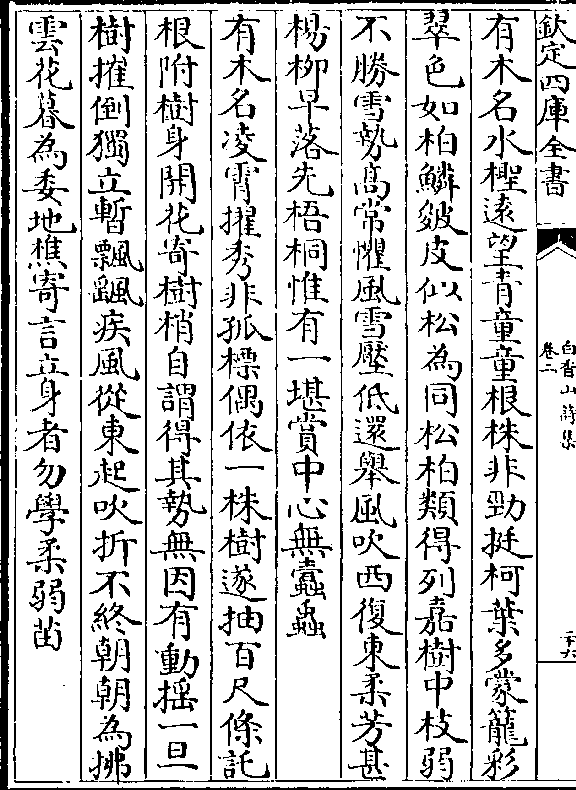 欽定四庫全書
白香山詩集
卷二
二十六
有木名水檉遠望青童童根株非勁挺柯葉多蒙籠彩
翠色如柏鱗皴皮似松為同松柏類得列嘉樹中枝弱
不勝雪勢髙常懼風雪壓低還舉風吹西復東柔芳甚
楊柳早落先梧桐惟有一堪賞中心無蠹蟲
有木名凌霄擢秀非孤標偶依一株樹遂抽百尺條託
根附樹身開花寄樹梢自謂得其勢無因有動揺一旦
樹摧倒獨立暫飄颻疾風從東起吹折不終朝朝為拂
雲花暮為委地樵寄言立身者勿學柔弱苗